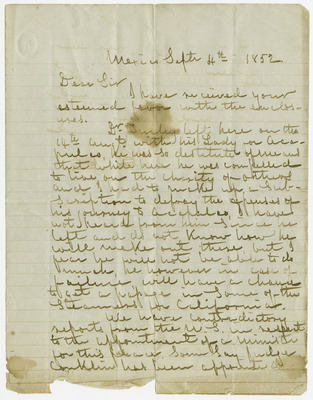 Mexico Septr 4th 1852
Dear Sir
I have received your
esteemed favor with the enclos-
ures.
Dr. left here on the
14th Augt with his Lady for Aca-
pulco, he was so destitute of means
that while here he was compelled
to live on the charity of others
and I had to make up a Sub-
scription to defray the expenses of
his journey to Acapulco, I have
not heard from him since he
left and do not know how he
will make out there, but I
fear he will not be able to do
much, he however in case of
failure will have a chance
to get a passage in some of the
Steamers to California.
We have contradictory
reports from the U.S. in respect
to the appointment of a Minister
for this place. Some say Judge
Conklin has been appointed